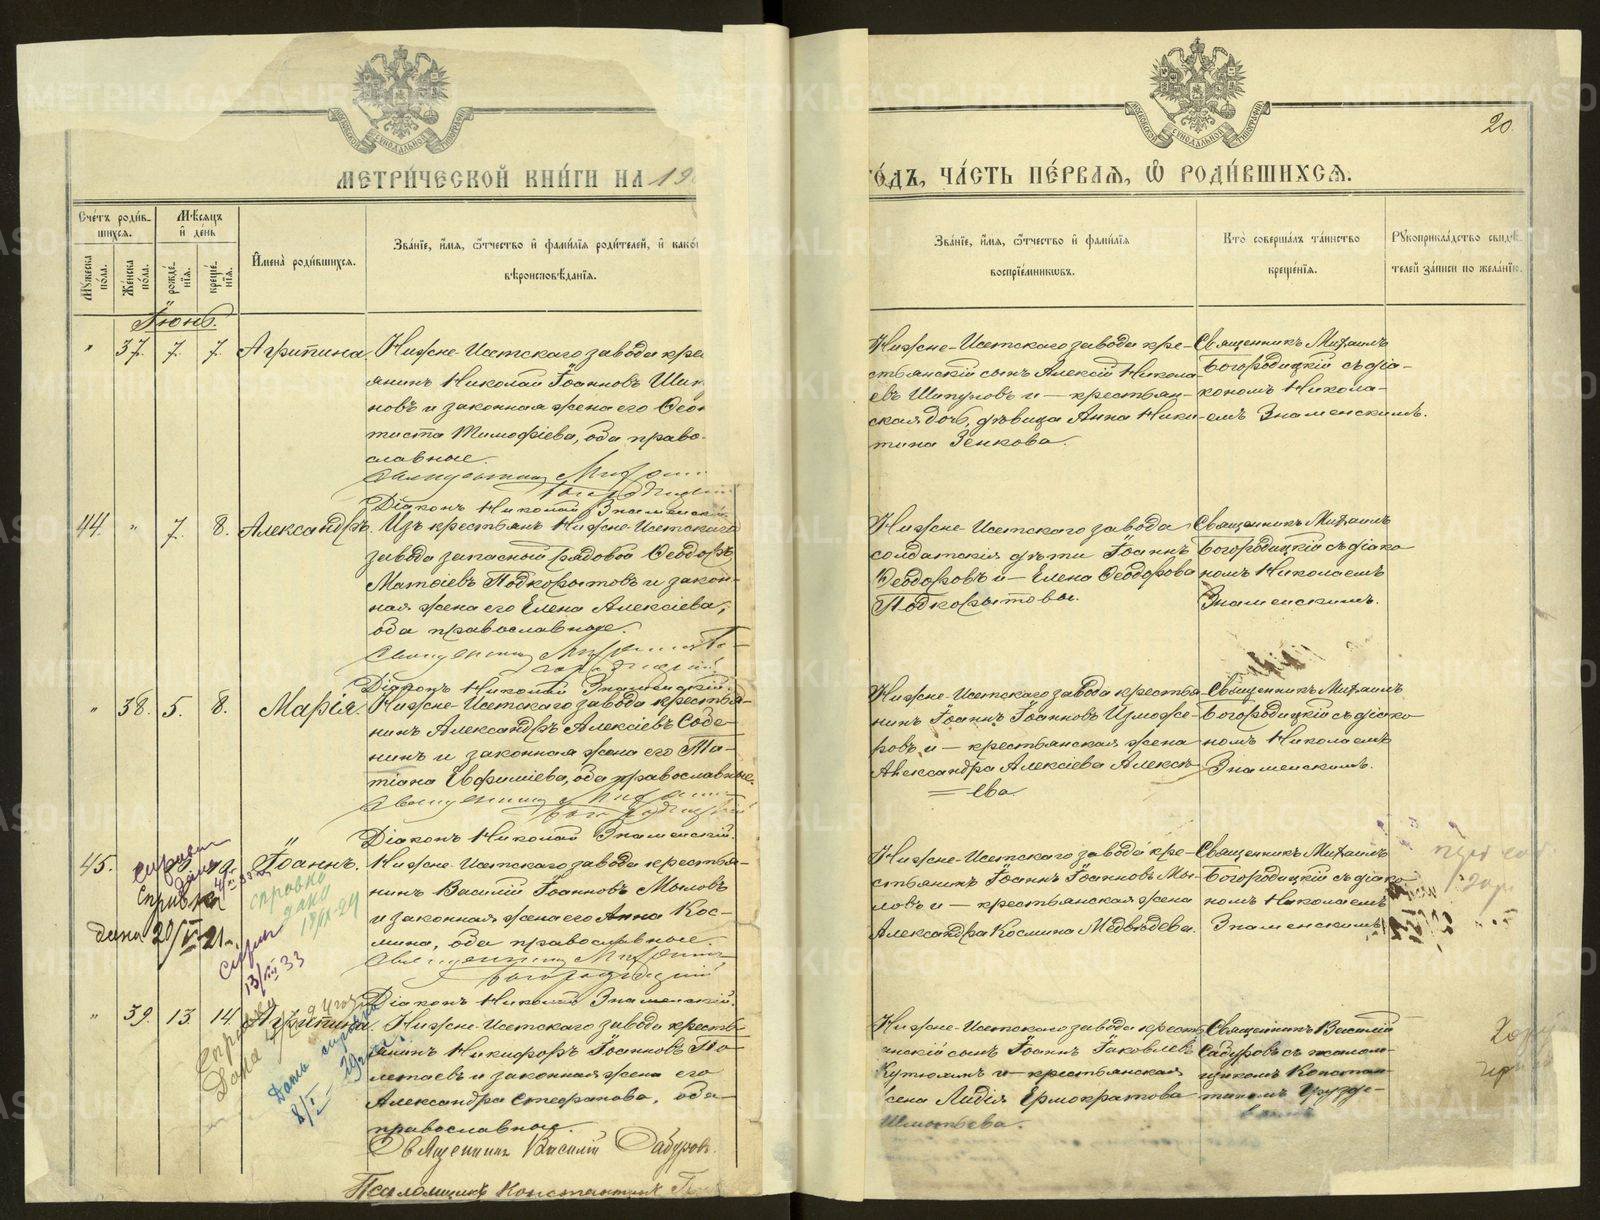 МЕТРИ́ЧЕСКОЙ КНИ́ГИ НА 19
ГО́ДЪ, ЧА́СТЬ ПЕ́РВАЯ, Ѡ РОДИ́ВШИХСЯ.
20.
Сче́тъ роди́в-
шихся.
Мѣ́сяцъ
и҆ де́нь
Му́жеска по́ла.
Же́нска по́ла.
рожде́-
нїя.
креще́-
нїя.
И҆мена̀ роди́вшихся.
Зва́нїе, и҆́мя, ѻ҆́тчество и҆ фами́лїя роди́телей, и҆ како́
вѣроисповѣ́данїя.
Зва́нїе, и҆́мя, ѻ҆́тчество и҆ фами́лїя
воспрїе́мникѡвъ.
Кто̀ соверша́лъ та́инство
креще́нїя.
Рꙋкоприкла́дство свидѣ́-
телей за́писи по жела́нїю.
Іюнь.
" 37. 7. 7. Агрипина
Нижне-Исетскаго завода кре
янинъ Николай Іоанновъ Ши
новъ и законная жена его Ѳео
тиста Тимофіева, оба право-
славные.
Священникъ Михаилъ
Богородицкій
Діаконъ Николай Знаменскій
Нижне-Исетскаго завода кре-
стьянскій сынъ Алексій Никола-
евъ Шипуновъ и – крестьян-
ская дочь, дѣвица Анна Ники-
тина Зенкова.
Священникъ Михаилъ
Богородицкій съ діа-
кономъ Никола-
емъ Знаменскимъ.
44. " 7. 8. Александръ.
Изъ крестьянъ Нижне-Исетскаго
завода запасный рядовой Ѳеодоръ
Матѳіевъ Подкорытовъ и закон-
ная жена его Елена Алексіева,
оба православные.
Священникъ Михаилъ Бо-
городицкій
Діаконъ Николай Знаменскій.
Нижне-Исетскаго завода
солдатскія дѣти Іоаннъ
Ѳеодоровъ и – Елена Ѳеодорова
Подкорытовы.
Священникъ Михаилъ
Богородицкій съ діако-
номъ Николаемъ
Знаменскимъ.
" 38. 5. 8. Марія.
Нижне-Исетскаго завода крестья-
нинъ Александръ Алексіевъ Соде-
нинъ и законная жена его Та-
тіана Евфиміева, оба православные.
Священникъ Михаилъ
Богородицкій
Діаконъ Николай Знаменскій.
Нижне-Исетскаго завода крестья-
нинъ Іоаннъ Іоанновъ Изможе-
ровъ и – крестьянская жена
Александра Алексіева Алексѣ-
ева.
Священникъ Михаилъ
Богородицкій съ діако-
номъ Николаемъ
Знаменскимъ.
45. Іоаннъ.
Нижне-Исетскаго завода крестья-
нинъ Василій Іоанновъ Мыловъ
и законная жена его Анна Кос-
мина, оба православные.
Священникъ Михаилъ
Богородицкій
Діаконъ Николай Знаменскій.
Нижне-Исетскаго завода кре-
стьянинъ Іоаннъ Іоанновъ Мы-
ловъ и – крестьянская жена
Александра Космина Медвѣдева.
Священникъ Михаилъ
Богородицкій съ діако-
номъ Николаемъ
Знаменскимъ.
Справка
дана 20/VI-21.
справка
дано
13/VIII 33
" 39. 13. 14. Агрипина.
Нижне-Исетскаго завода кресть-
янинъ Никифоръ Іоанновъ По-
летаевъ и законная жена его
Александра Стефанова, оба
православные.
Священникъ Василій Сабуровъ.
Псаломщикъ Константинъ
Нижне-Исетскаго завода крест
янскій сынъ Іоаннъ Іаковлевъ
Кутюхинъ и – крестьянская
Лидія Ермократова
Священникъ Василій
Сабуровъ съ псалом-
щикомъ Констан-
тиномъ
Справка
Дана
Дана справка